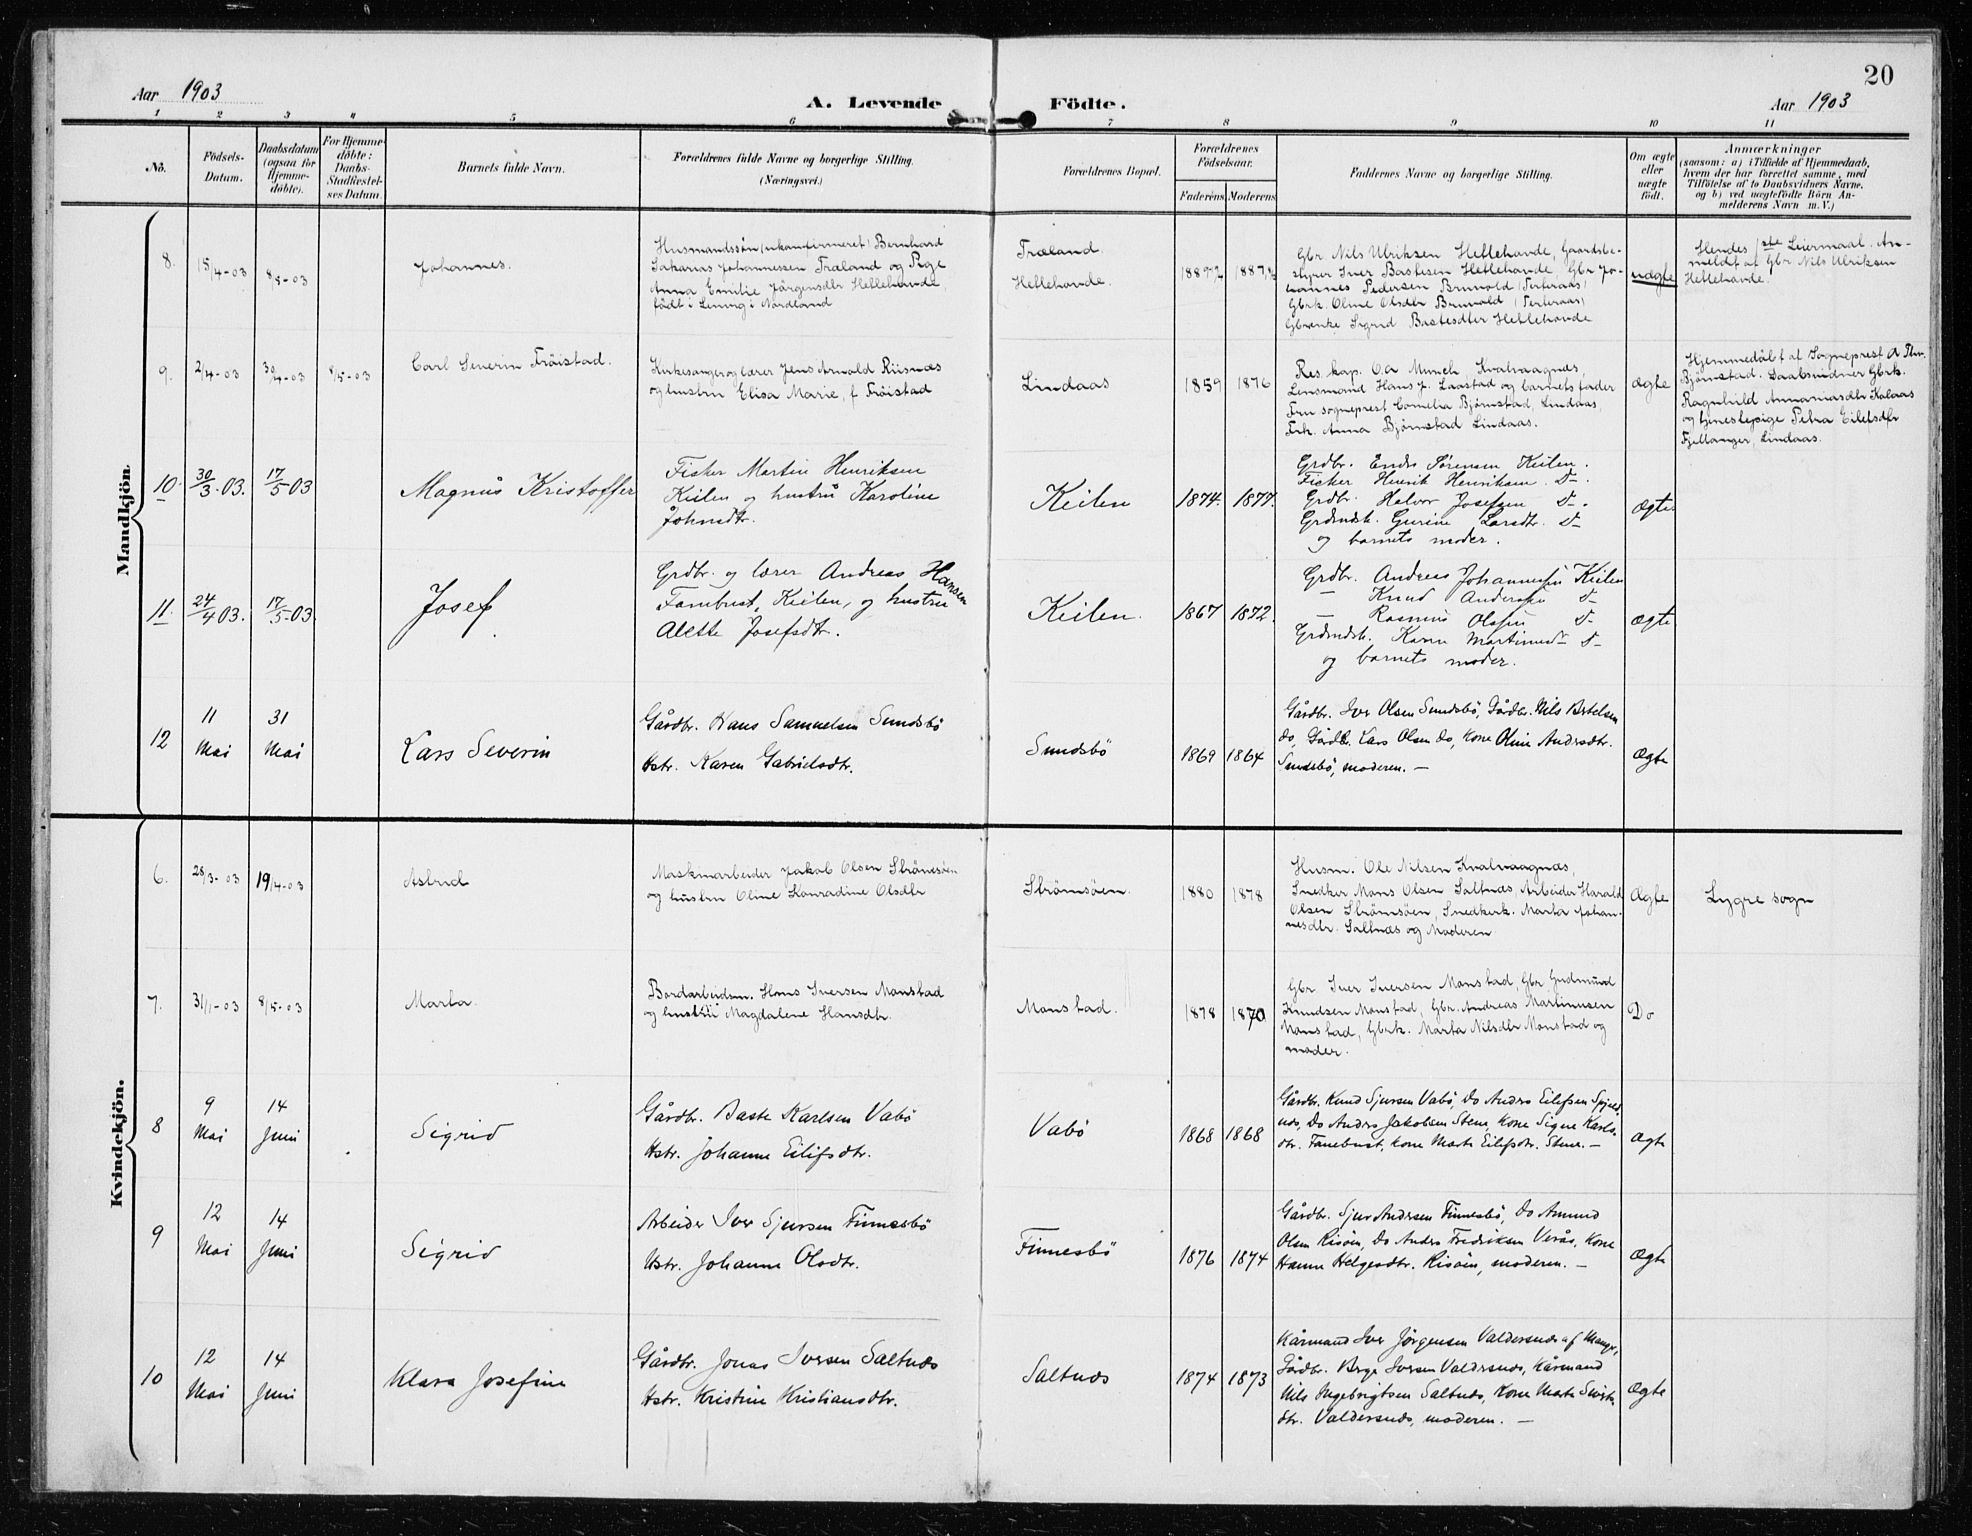 20
Aar 1903
A. Levende Födte.
Aar 1903
1 2 3 4 5 6 7 8 9 10 11
No.
Födsels-
Datum.
Daabsdatum
(ogsaa for
Hjemme-
döbte).
For Hjemme-
döbte:
Daabs-
Stadfæstel-
ses Datum.
Barnets fulde Navn.
Forældrenes fulde Navne og borgerlige Stilling.
(Næringsvei.)
Forældrenes Bopæl.
Forældrenes
Födselsaar.
Faderens Moderens
Faddernes Navne og borgerlige Stilling.
Om ægte
eller
uægte
födt.
Anmærkninger
(saasom: a) i Tilfælde af Hjemmedaab,
hvem der har forrettet samme, med
Tilföielse af to Daabsvidners Navne,
og b) ved uægtefödte Börn An-
melderens Navn m. V.)
Mandkjön
8.
15/4-03
8/5-03
Johannes.
Husmandssön (ukonfirmeret) Bernhard
Sakarias Johannessen Træland og Pige
Anna Emilie Jörgensdtr Hetlehovde,
födt i Lening i Nordland
Træland.
Hetlehovde.
Gbr Nils Ulriksen Hetlehovde, Gaardsbe-
styrer Iver Bastesen Hetlehovde, Gbr Jo-
hannes Pedersen Brunold (Terteraas)
Gbrk. Oline Olsdtr Brunold (Terteraas)
Gbrenke Sigrid Bastesdtr Hetlehovde
uægte
Hendes 1ste Leiermaal. An-
meldt af Gbr Nils Ulriksen
Hetlehovde.
9.
2/4-03
30/4-03
8/5-03
Carl Severin Fröistad.
Kirkesanger og lærer Jens Arnold Riisnæs
og hustru Elisa Marie, f Fröistad
Lindaas
1859
1876
Res. kap. O.A. Munch, Kvalvaagnæs,
Lensmand Hans J. Laastad og barnets fader
Fru sogneprest Cornelia Bjørnstad, Lindaas,
Frk. Anna Bjørnstad Lindaas.
ægte
Hjemmedöbt af Sogneprest A Thv.
Bjørnstad. Daabsvidner Gbrk.
Ragnhild Annaniasdtr Kolaas
og tjenestepige Petra Eilefsdtr
Fjellanger, Lindaas.
10.
30/3.03.
17/5 03
Magnus Kristoffer
Fisker Martin Henriksen
Keilen og hustru Karoline
Johnsdtr.
Keilen
1874.
1877.
Grdbr. Endre Sørensen Keilen.
Fisker Henrik Henriksen D-.
Grdbr. Halvor Josefsen D-.
Grdmdsk. Gurine Larsdtr. D-
og barnets moder.
Ægte
11.
24/4 03.
17/5-03.
Josef
Grdbr. og lærer Andreas Hansen
Fanebust, Keilen, og hustru
Alette Josefsdtr.
Keilen.
1867
1872.
Grdbr. Andreas Johannessen Keilen
— Knud Andersen D-
— Rasmus Olssen D-
Grdmdsk. Karen Martinusd- D-
og barnets moder.
Ægte
12
11
Mai
31
Mai
Lars Severin
Gårdbr. Hans Samuelsen Sundsbö
Hstr. Karen Gabrielsdtr.
Sundsbö
1869
1864
Gårdbr. Iver Olsen Sundsbö, Gårdbr. Nils Bertelsen
do, Gårdb. Lars Olsen do, kone Oline Andersdtr.
Sundsbö, moderen. —
Ægte
Kvindekjön.
6.
28/3-03
19/4-03
Astrid
Maskinarbeider Jakob Olsen Strömsöen
og hustru Oline Konradine Olsdtr
Strömsöen.
1880
1878
Husm. Ole Nilsen Kvalvaagnæs,
Snedker Mons Olsen Saltnæs, Arbeider Harald
Olsen Strömsöen, Snedkerk. Marta Johan-
nesdtr. Saltnæs og Moderen
Ægte
Lygre sogn
7.
31/1-03
8/5-03
Marta.
Bordarbeidsm. Hans Iversen Monstad
og hustru Magdalene Hansdtr.
Monstad.
1878
1870
Gbr Iver Iversen Monstad, Gbr Gudmund
Knudsen Monstad, Gbr. Andreas Martinusen
Monstad, Gbrk. Marta Nilsdtr Monstad og
moder.
Do
8
9
Mai
14
Juni
Sigrid
Gårdbr. Baste Karlsen Vabö
Hstr. Johanne Eilifsdtr.
Vabö
1868
1868
Gårdbr. Knud Sjursen Vabö, Do Anders Eilefsen Spjeld-
næs, Do Anders Jakobsen Stene, kone Signe Karls-
dtr. Fanebust, kone Marta Eilifsdtr. Stene. —
Ægte
9
12
Mai
14
Juni
Sigrid
Arbeider Iver Sjursen Finnesbö
Hstr. Johanne Olsdtr.
Finnesbö
1876
1874
Gårdbr. Sjur Andersen Finnesbö, Do Amund
Olsen Risöen, Do Anders Fredriksen Verås, kone
Hanne Helgesdtr. Risöen, moderen. —
Ægte
10
12
Mai
14
Juni
Klara Josefine
Gårdbr. Jonas Iversen Saltnæs
Hstr. Kristine Kristiansdtr.
Saltnæs
1874
1873
Kårmand Iver Jörgensen Valdersnæs af Manger,
Gårdbr. Børge Iversen Valdersnæs, Kårmand
Nils Ingebrigtsen Saltnæs, kone Marta
dtr. Valdersnæs, moderen. —
Ægte